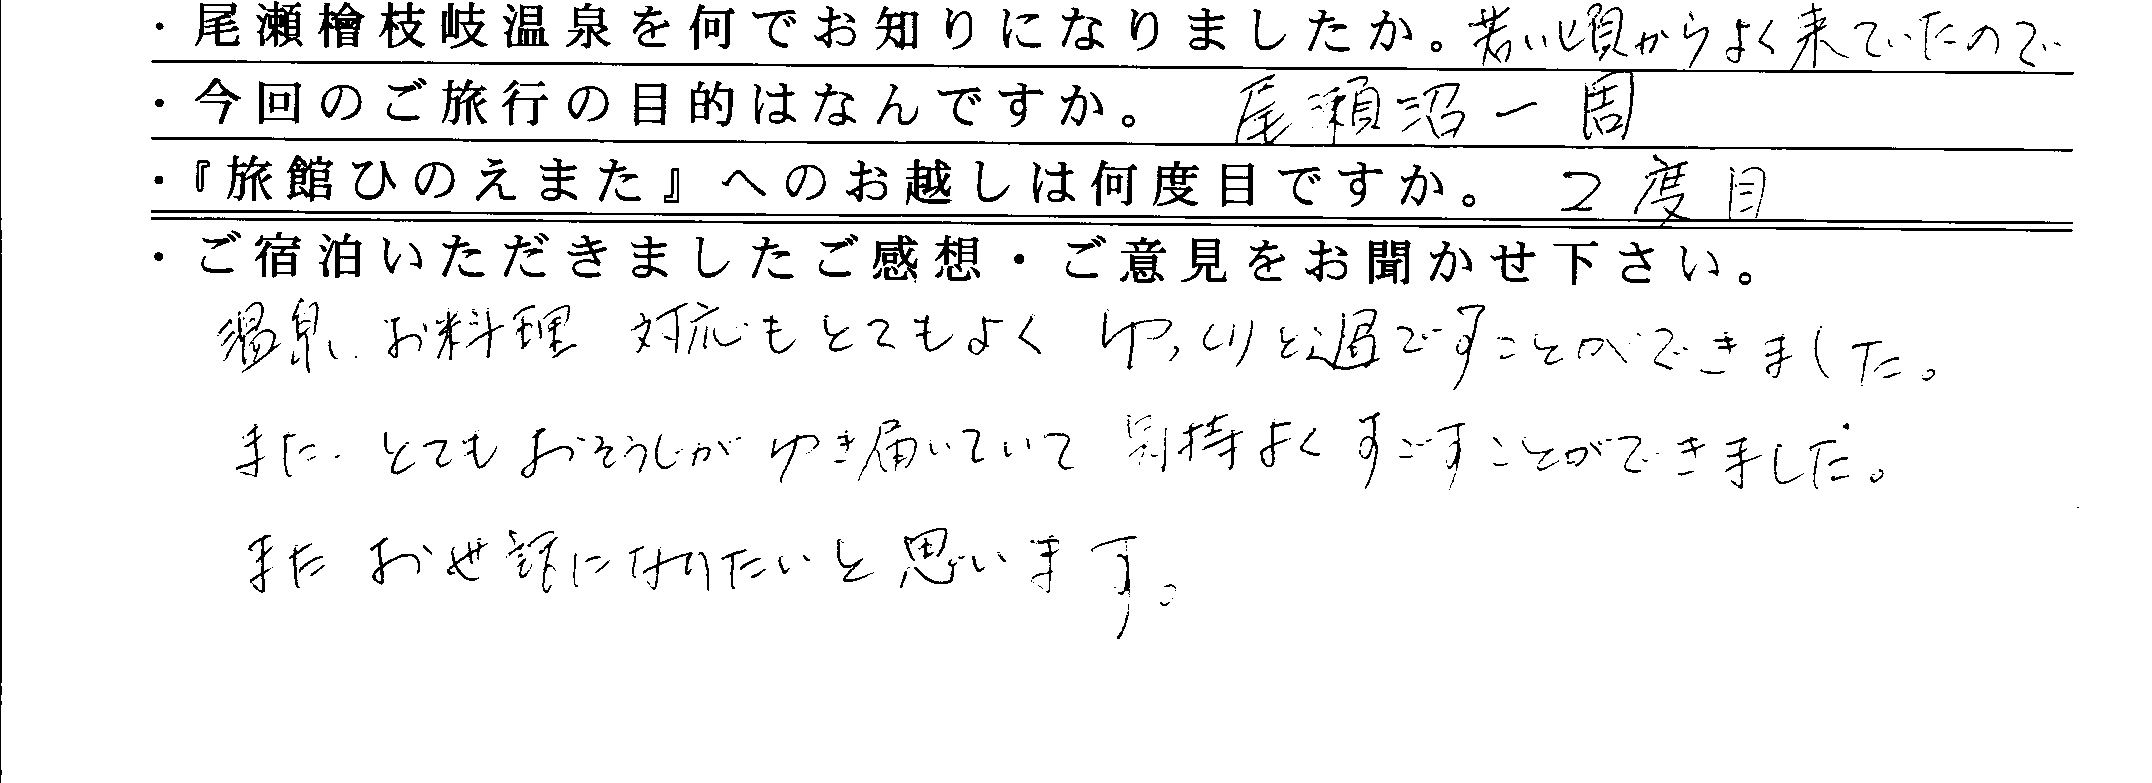 ・尾瀬檜枝岐温泉を何でお知りになりましたか。若い頃からよく来ていたので
・今回のご旅行の目的はなんですか。 尾瀬沼一周
・『旅館ひのえまた』へのお越しは何度目ですか。 2度目
・ご宿泊いただきましたご感想・ご意見をお聞かせ下さい。
温泉、お料理 対応もとてもよく ゆっくりと過ごすことができました。
また、とてもおそうじがゆき届いていて 気持よくすごすことができました。
またお世話になりたいと思います。